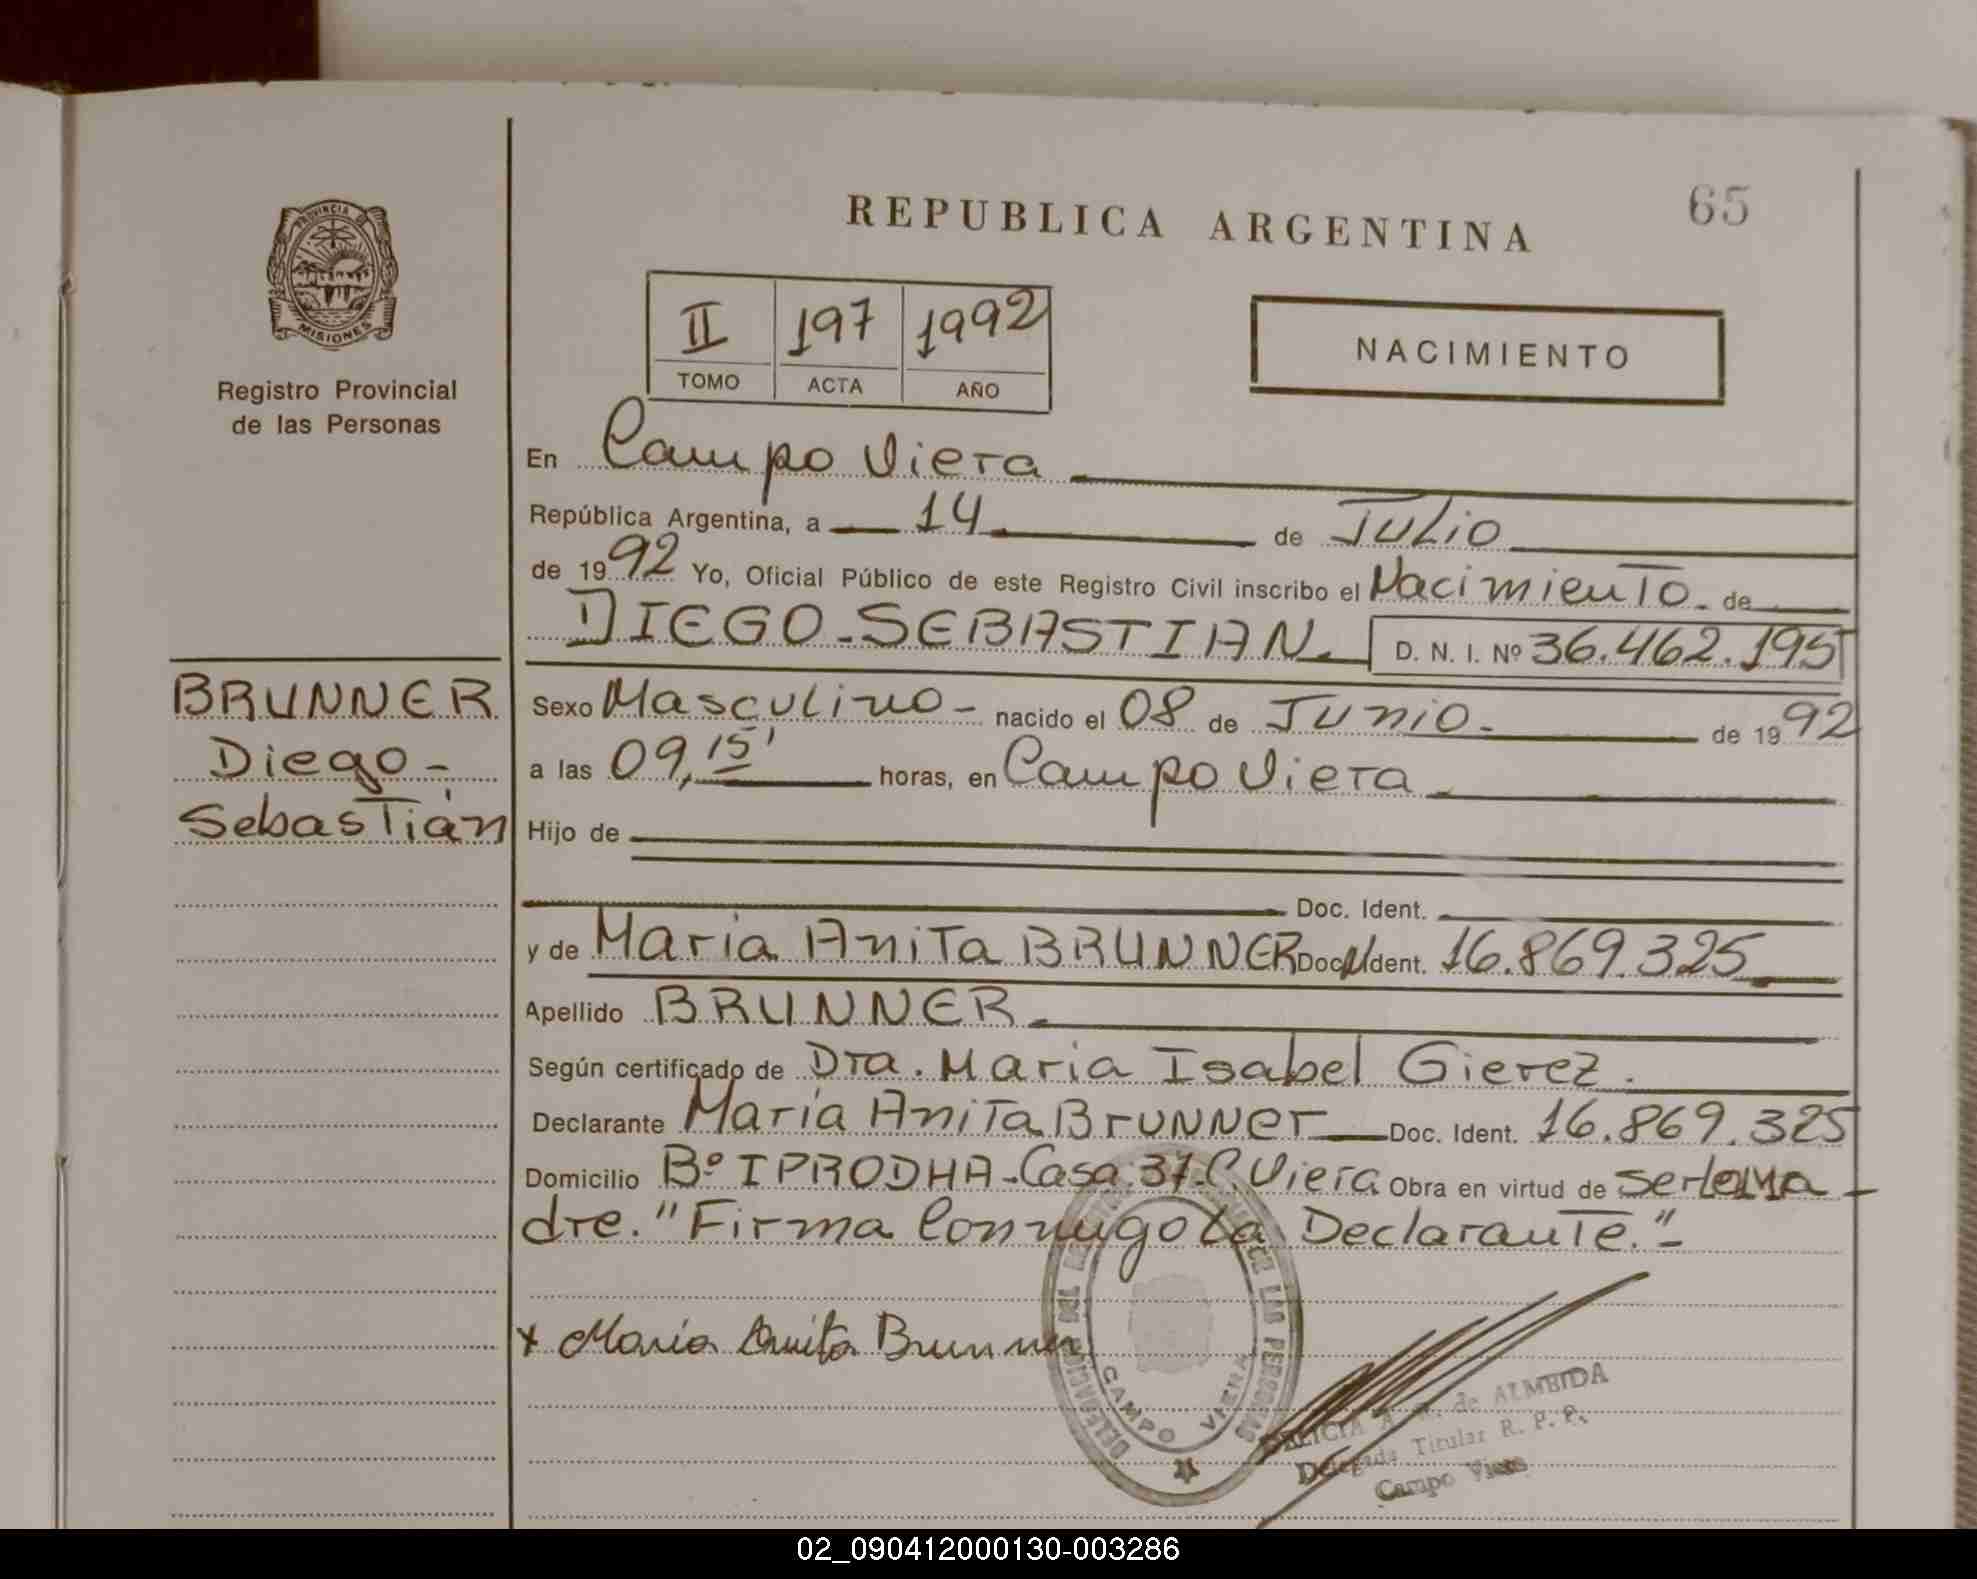 65
REPUBLICA ARGENTINA
PROVINCIA DE
MISIONES
Registro Provincial
de las Personas
II 197 1992
TOMO ACTA AÑO
NACIMIENTO
En Campo Viera
República Argentina, a 14 de Julio
de 1992 Yo, Oficial Público de este Registro Civil inscribo el Nacimiento. de
DIEGO-SEBASTIAN. D. N. I. Nº 36.462.195
BRUNNER
Diego-
Sebastián
Sexo Masculino- nacido el 08 de Junio. de 1992
a las 09,15' horas, en Campo Viera
Hijo de
Doc. Ident.
y de María Anita BRUNNER Doc. Ident. 16.869.325
Apellido BRUNNER.
Según certificado de Dra. Maria Isabel Gierez.
Declarante María Anita Brunner Doc. Ident. 16.869.325
Domicilio Bº IPRODHA-Casa 37-C. Viera Obra en virtud de ser la ma-
dre. "Firma Conmigo la Declarante."-
x María Anita Brunner
DELEGACION DEL LAS PERSONAS
CAMPO VIERA
DELICIA A. de ALMEIDA
Delegada Titular R. P. P.
Campo Viera
02_090412000130-003286